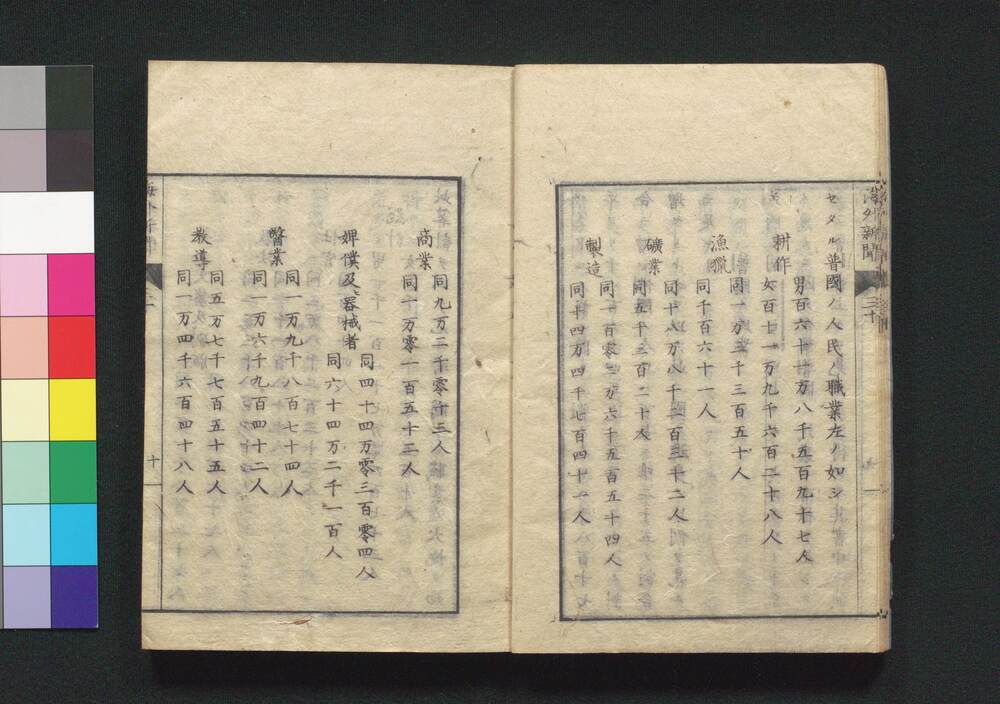 海外新聞 三十
セタル普國ノ人民ノ職業左ノ如シ
耕作
男百六十十万八千五百九十七人
女百十一万九千六百二十八人
漁獵
同一万二千三百五十人
同千百六十一人
礦業
同十八万八千二百三十二人
同五千三百二十人
製造
同一百零三万六千五百五十四人
同十四万四千七百四十一人
商業
同九万二千零十三人
同一万零一百五十二人
婢僕及器械者
同四十四万零三百零四人
同六十四万二千一百人
醫業
同一万九千八百七十四人
同一万六千九百四十二人
教導
同五万七千七百五十五人
同一万四千六百四十八人
十